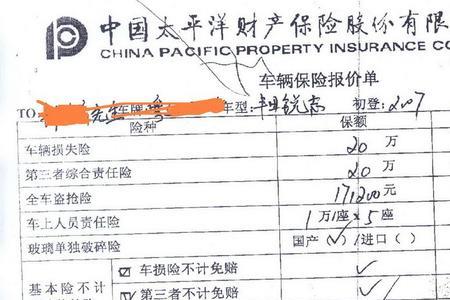 中国太平洋财产保险股份有限
CHINA PACIFIC PROPERTY INSURANCE CO
车辆保险报价单
TO 先生 车牌 车型: 丰田锐志 初登: 2007
险种 保额
车辆损失险 20 万
第三者综合责任险 20 万
全车盗抢险 171200 元
车上人员责任险 1万/座×5座
玻璃单独破碎险 国产(√)/进口( )
基本险不计 ☑ 车损险不计免赔 √
☑ 第三者不计免赔 √